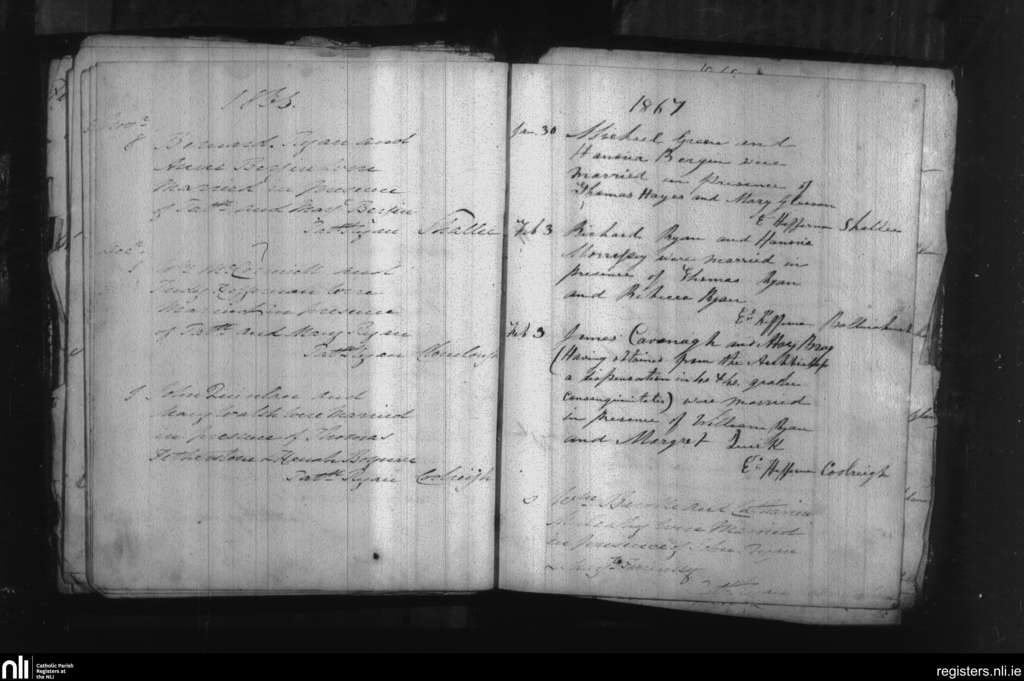 Novr
8 Bernard Ryan and
Anne Bergin were
Married in presence
of Patk and Mary Bergin
Patk Ryan Shallee
Decr
Wm McCormick and
Judy Heffernan were
Married in presence
of Patk and Mary Ryan
Patk Ryan
9 John Quinlan and
Mary Walsh were married
in presence of Thomas
Fetherston &
Patk Ryan Coolreigh
1867
Jan. 30 Michael Green and
Hanoria Bergin were
married in presence of
Thomas Hayes and Mary Gleeson
E Heffernan Shallee
Feb 3 Richard Ryan and Hanoria
Morrissy were married in
presence of Thomas Ryan
and Rebecca Ryan
Ed Heffernan
Feb 3 James Cavanagh and Mary Bray
(Having obtained from the Archbishop
a dispensation in 4o & 4o gradu
consanguinitatis) were married
in presence of William Ryan
and Margret Quirk
Ed Heffernan Coolreigh
Wm and Catharine
were Married
in presence of John Ryan
NLI
Catholic Parish
Registers at
the NLI
registers.nli.ie